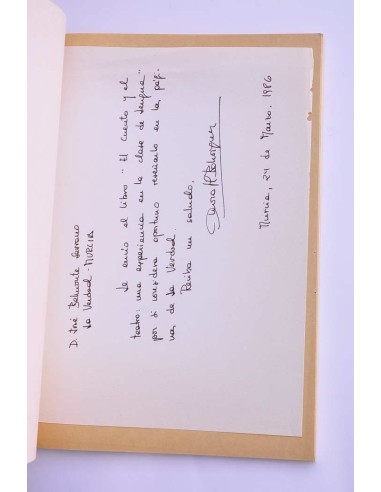 D. José Belmonte Serrano
La Verdad - MURCIA
Le envío el libro "El cuento y el
teatro: una experiencia en la clase de lengua"
por si considera oportuno reseñarlo en las pági-
nas de La Verdad.
Reciba un saludo,
Murcia, 24 de Marzo, 1986